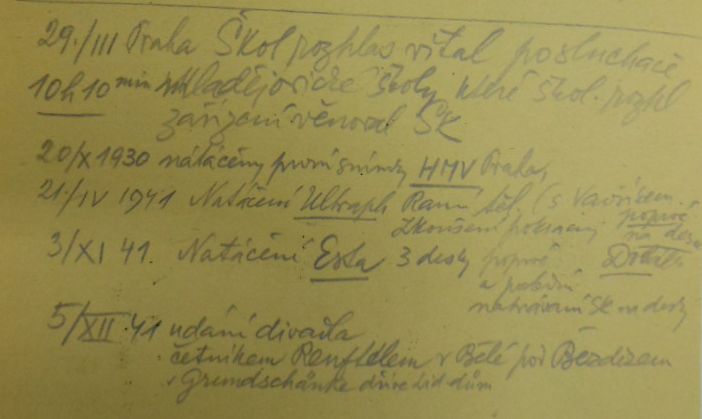 29./III Praha Škol. rozhlas vítal posluchače
10h 10 min školy které škol. rozhl
zařízení věnoval ŠK
20/X 1930 natáčeny první snímky HMV Praha,
21./IV 1941 Natáčení Ultraph Ranní těl. (s Vavříkem
poprvé
Zkoušení na desce
3/XI 41. Natáčení Esta 3 desky poprvé
a
natrávaní SK na desky
5/XII 41 udání divadla
četníkem Renftélem v Bělé pod Bezdězem
v Grundschänke dříve Lid dům